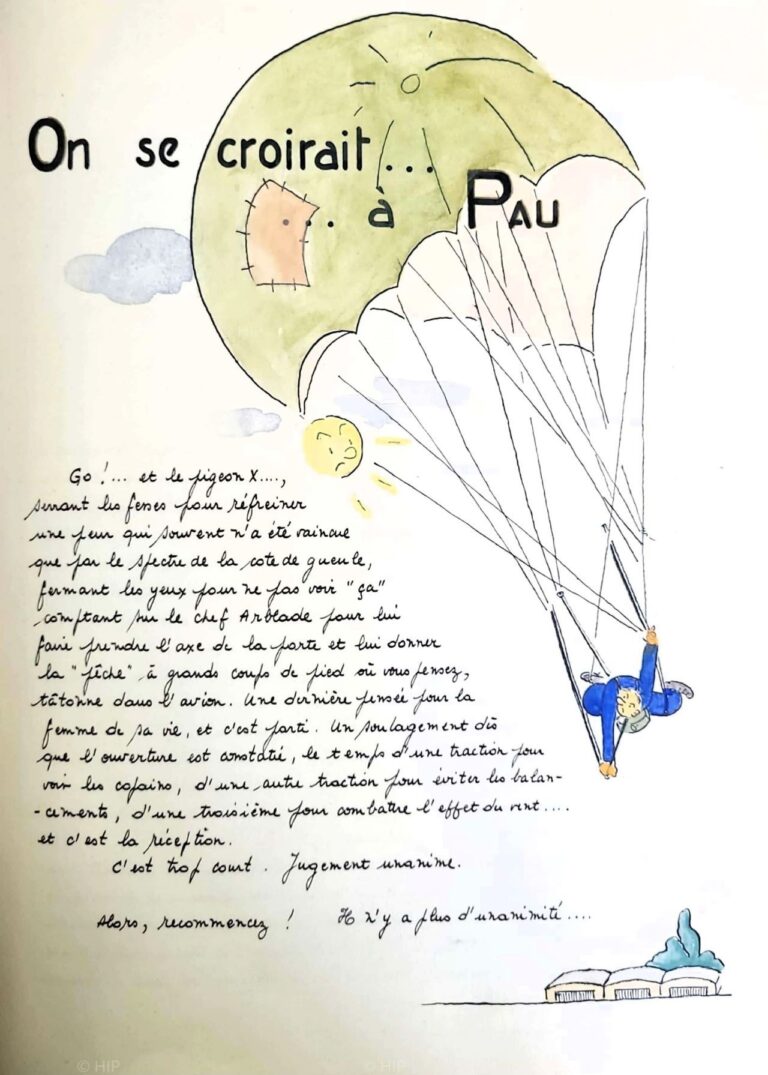 On se croirait...
... à PAU
Go !... et le pigeon X....,
serrant les fesses pour réfreiner
une peur qui souvent n'a été vaincue
que par le spectre de la cote de gueule,
fermant les yeux pour ne pas voir "ça"
comptant sur le chef Arblade pour lui
faire prendre l'axe de la porte et lui donner
la "pêche" à grands coups de pied où vous pensez,
tâtonne dans l'avion. Une dernière pensée pour la
femme de sa vie, et c'est parti. Un soulagement dès
que l'ouverture est constatée, le temps d'une traction pour
voir les copains, d'une autre traction pour éviter les balan-
-cements, d'une troisième pour combattre l'effet du vent....
et c'est la réception.
C'est trop court. Jugement unanime.
Alors, recommencez ! Il n'y a plus d'unanimité....
© HIP © HIP